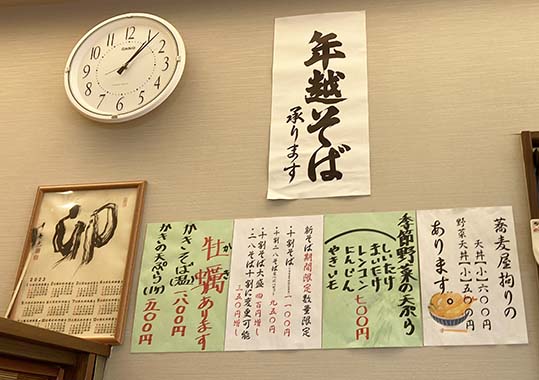 年越そば
承ります
卯
2023
CASIO
12
1
2
3
4
5
6
7
8
9
10
11
蕎麦屋拘りの
天丼(小)六〇〇円
野菜天丼(小)五〇〇円
あります
季節野菜の天ぷら
しいたけ
まいたけ
レンコン
にんじん
やきいも
七〇〇円
新そば期間限定数量限定
十割そば 一一〇〇円
十割二八そば
九五〇円
十割そば大盛 四百円増し
二八そば十割に変更可能
三五〇円増し
牡蠣あります
かき
かきそば(温)
一八〇〇円
かきの天ぷら
一五〇〇円